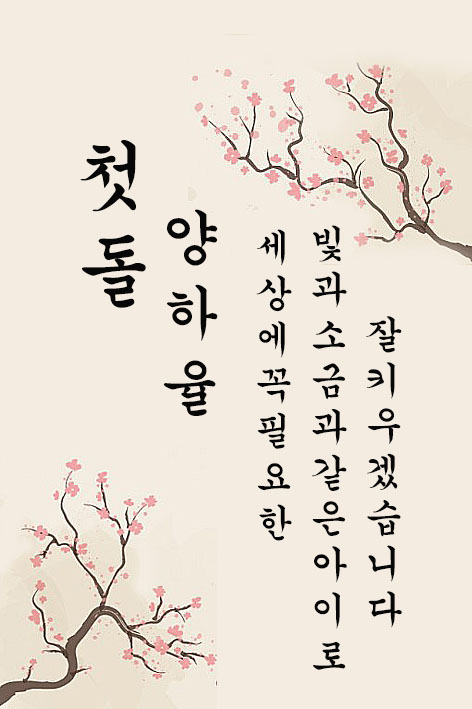 첫돌
양하율
세상에꼭필요한
빛과소금과같은아이로
잘키우겠습니다